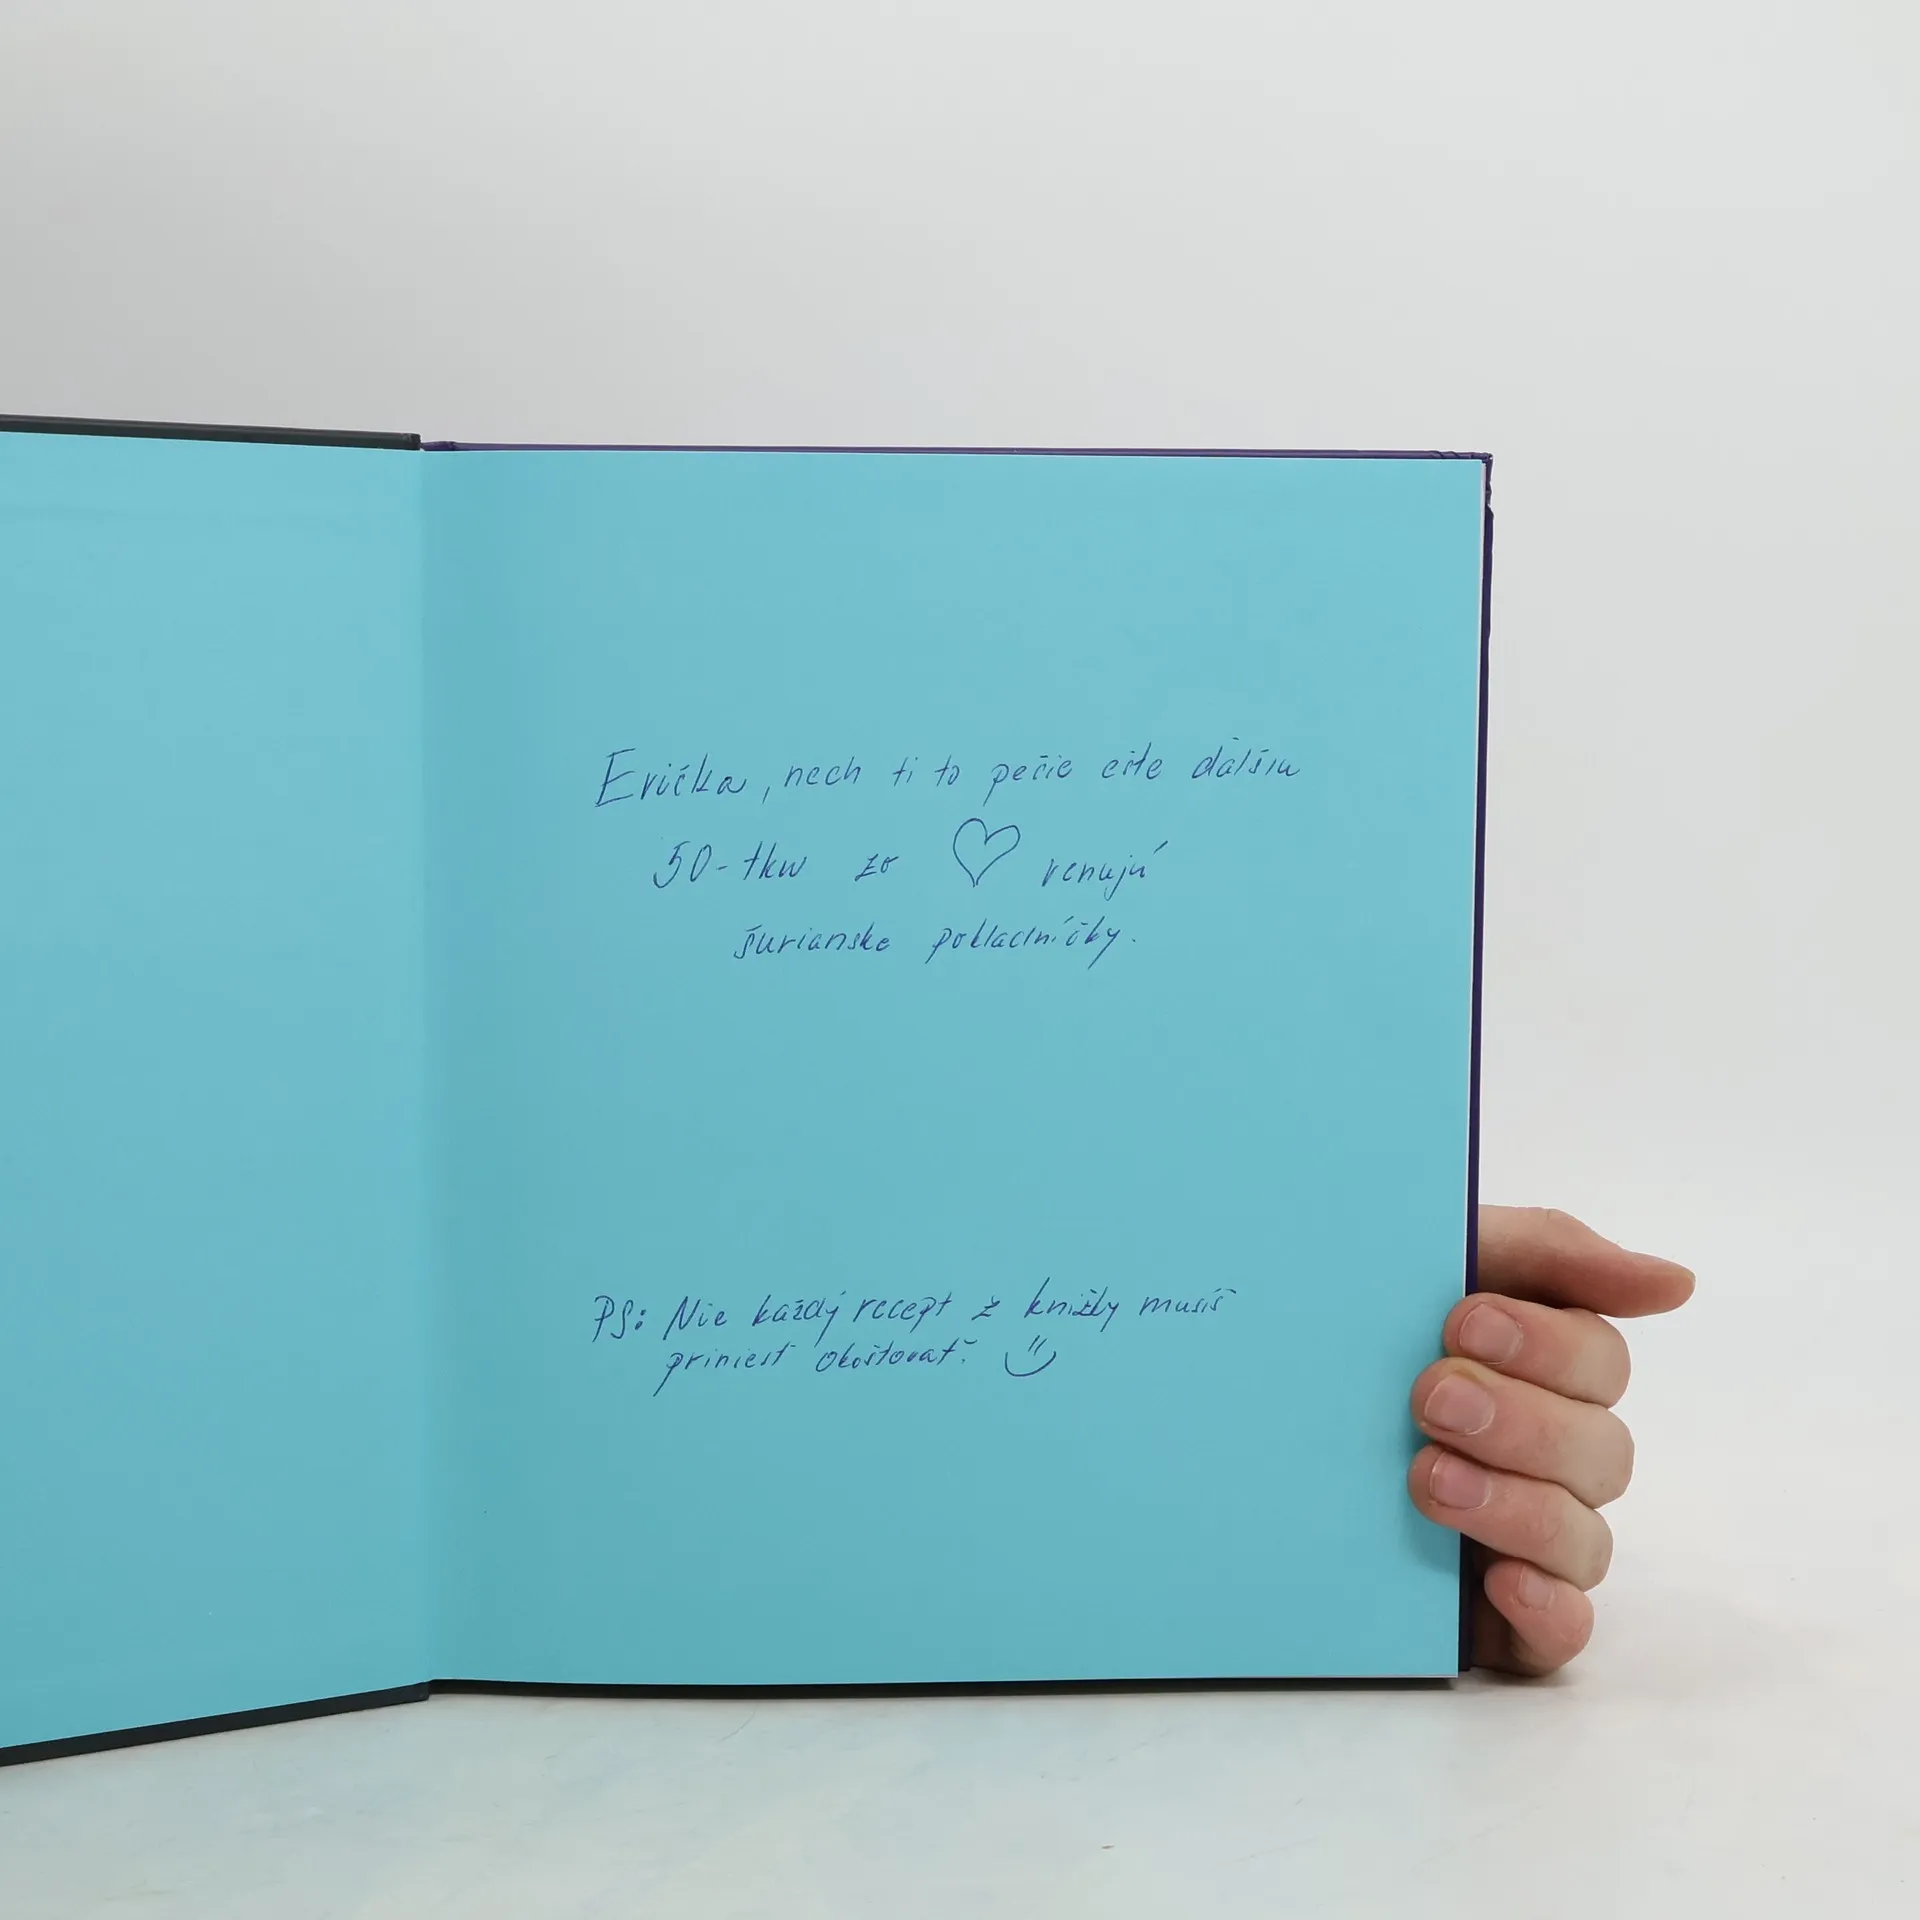 Evička, nech ti to pečie ešte ďalšiu
50-tku zo ♡ venujú
šurianske pokladníčky.
PS: Nie každý recept z knižky musíš
priniesť okoštovať.